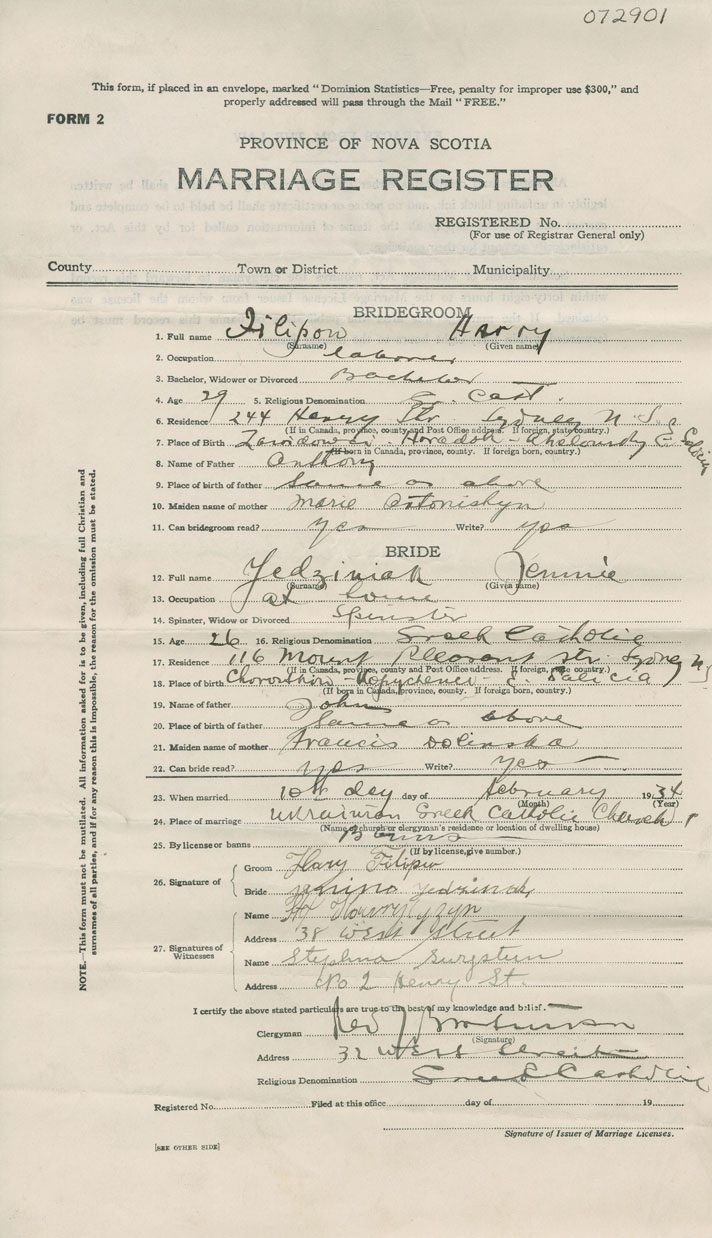 072901
This form, if placed in an envelope, marked "Dominion Statistics—Free, penalty for improper use $300," and
properly addressed will pass through the Mail "FREE."
FORM 2
PROVINCE OF NOVA SCOTIA
MARRIAGE REGISTER
REGISTERED No.
(For use of Registrar General only)
County Town or District Municipality
BRIDEGROOM
1. Full name Filipow Harry
(Surname) (Given name)
2. Occupation laborer
3. Bachelor, Widower or Divorced Bachelor
4. Age 29 5. Religious Denomination G. Cath.
6. Residence 244 Henry Str. Sydney N. S.
(If in Canada, province, county and Post Office address. If foreign, state country.)
7. Place of Birth Horadok
(If born in Canada, province, county. If foreign born, country.)
8. Name of Father Anthony
9. Place of birth of father Same as above
10. Maiden name of mother Marie
11. Can bridegroom read? yes Write? yes
BRIDE
12. Full name Jedziniak Jennie
(Surname) (Given name)
13. Occupation at home
14. Spinster, Widow or Divorced Spinster
15. Age 26 16. Religious Denomination Greek Catholic
17. Residence 116 Mount Pleasant Str. Sydney N S
(If in Canada, province, county and Post Office address. If foreign, state country.)
18. Place of birth E. Galicia
(If born in Canada, province, county. If foreign born, country.)
19. Name of father John
20. Place of birth of father Same as above
21. Maiden name of mother Francis Dolinska
22. Can bride read? yes Write? yes
23. When married 10th day day of February 1934
(Month) (Year)
24. Place of marriage Ukrainian Greek Catholic Church
(Name of church or clergyman's residence or location of dwelling house)
25. By license or banns Banns
(If by license, give number.)
26. Signature of
Groom Harry Filipow
Bride Jedziniak
27. Signatures of Witnesses
Name
Address 38 West Street
Name
Address No 2 Henry St.
I certify the above stated particulars are true to the best of my knowledge and belief.
Clergyman Rev
(Signature)
Address 32 West Street
Religious Denomination Greek Catholic
Registered No. Filed at this office day of 19
Signature of Issuer of Marriage Licenses.
[SEE OTHER SIDE]
NOTE.—This form must not be mutilated. All information asked for is to be given, including full Christian and
surnames of all parties, and if for any reason this is impossible, the reason for the omission must be stated.